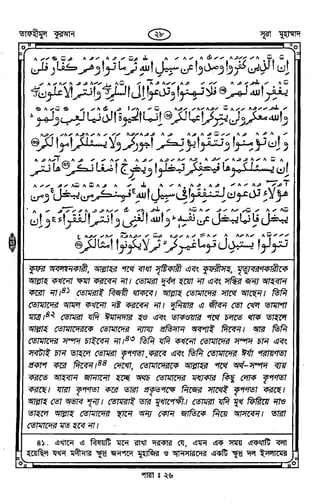 তাফহীমুল কুরআন ২৮ সূরা মুহাম্মাদ
إِنَّ الَّذِينَ كَفَرُوا وَصَدُّوا عَنْ سَبِيلِ اللَّهِ ثُمَّ مَاتُوا وَهُمْ كُفَّارٌ فَلَنْ
يَغْفِرَ اللَّهُ لَهُمْ ۝ فَلَا تَهِنُوا وَتَدْعُوا إِلَى السَّلْمِ ۖ وَأَنْتُمُ الْأَعْلَوْنَ ۖ
وَاللَّهُ مَعَكُمْ وَلَنْ يَتِرَكُمْ أَعْمَالَكُمْ ۝ إِنَّمَا الْحَيَاةُ الدُّنْيَا لَعِبٌ وَلَهْوٌ ۚ
وَإِنْ تُؤْمِنُوا وَتَتَّقُوا يُؤْتِكُمْ أُجُورَكُمْ وَلَا يَسْأَلْكُمْ أَمْوَالَكُمْ ۝
إِنْ يَسْأَلْكُمُوهَا فَيُحْفِكُمْ تَبْخَلُوا وَيُخْرِجْ أَضْغَانَكُمْ ۝ هَا أَنْتُمْ
هَٰؤُلَاءِ تُدْعَوْنَ لِتُنْفِقُوا فِي سَبِيلِ اللَّهِ ۚ فَمِنْكُمْ مَنْ يَبْخَلُ ۚ وَمَنْ
يَبْخَلْ فَإِنَّمَا يَبْخَلُ عَنْ نَفْسِهِ ۚ وَاللَّهُ الْغَنِيُّ وَأَنْتُمُ الْفُقَرَاءُ ۚ وَإِنْ
تَتَوَلَّوْا يَسْتَبْدِلْ قَوْمًا غَيْرَكُمْ ۙ ثُمَّ لَا يَكُونُوا أَمْثَالَكُمْ ۝
কুফর অবলম্বনকারী, আল্লাহর পথে বাধা সৃষ্টিকারী এবং কুফরীসহ, মৃত্যুবরণকারীকে
আল্লাহ কখনো ক্ষমা করবেন না। তোমরা দুর্বল হয়ো না এবং সন্ধির জন্য আহবান
করো না।৪১ তোমরাই বিজয়ী থাকবে। আল্লাহ তোমাদের সাথে আছেন। তিনি
তোমাদের আমল কখনো নষ্ট করবেন না। দুনিয়ার এ জীবন তো খেল তামাশা
মাত্র।৪২ তোমরা যদি ঈমানদার হও এবং তাকওয়ার পথে চলতে থাক তাহলে
আল্লাহ তোমাদেরকে তোমাদের ন্যায্য প্রতিদান অবশ্যই দিবেন। আর তিনি
তোমাদের সম্পদ চাইবেন না।৪৩ তিনি যদি কখনো তোমাদের সম্পদ চান এবং
সবটাই চান তাহলে তোমরা কৃপণতা করবে এবং তিনি তোমাদের ঈর্ষা পরায়ণতা
প্রকাশ করে দিবেন।৪৪ দেখো, তোমাদেরকে আল্লাহর পথে অর্থ-সম্পদ ব্যয়
করতে আহবান জানানো হচ্ছে অথচ তোমাদের মধ্যকার কিছু লোক কৃপণতা
করছে। যারা কৃপণতা করে তারা প্রকৃতপক্ষে নিজের সাথেই কৃপণতা করছে।
আল্লাহ তো অভাব শূন্য। তোমরাই তার মুখাপেক্ষী। তোমরা যদি মুখ ফিরিয়ে নাও
তাহলে আল্লাহ তোমাদের স্থানে অন্য কোন জাতিকে নিয়ে আসবেন। তারা
তোমাদের মত হবে না।
৪১. এখানে এ বিষয়টি মনে রাখা দরকার যে, এমন এক সময় একথাটি বলা
হয়েছিল যখন মদীনার ক্ষুদ্র জনপদে মুহাজির ও আনসারদের একটি ক্ষুদ্র দল ইসলামের
পারা : ২৬